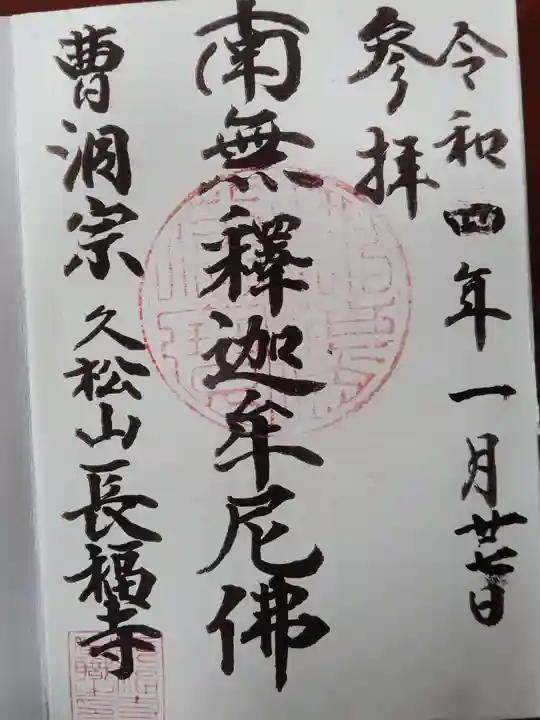 令和四年一月廿七日
參拝
南無釋迦牟尼佛
曹洞宗 久松山長福寺